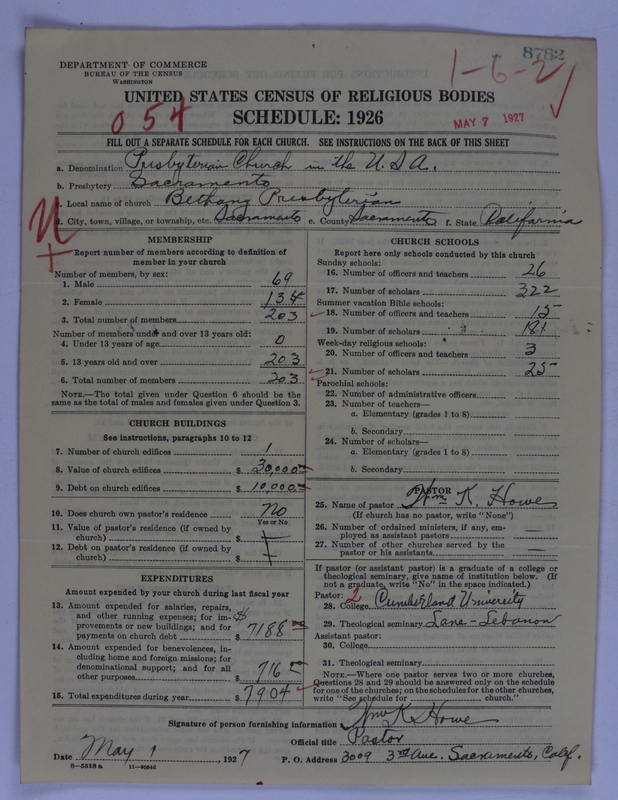 8782
DEPARTMENT OF COMMERCE
BUREAU OF THE CENSUS
WASHINGTON
1-6-2
UNITED STATES CENSUS OF RELIGIOUS BODIES
SCHEDULE: 1926
054
MAY 7 1927
FILL OUT A SEPARATE SCHEDULE FOR EACH CHURCH. SEE INSTRUCTIONS ON THE BACK OF THIS SHEET
a. Denomination Presbyterian Church in the U.S.A.
b. Presbytery Sacramento
c. Local name of church Bethany Presbyterian
d. City, town, village, or township, etc. Sacramento e. County Sacramento f. State California
MEMBERSHIP
Report number of members according to definition of
member in your church
Number of members, by sex:
1. Male 69
2. Female 134
3. Total number of members 203
Number of members under and over 13 years old:
4. Under 13 years of age 0
5. 13 years old and over 203
6. Total number of members 203
NOTE.—The total given under Question 6 should be
same as the total of males and females given under Question 3.
CHURCH BUILDINGS
See instructions, paragraphs 10 to 12
7. Number of church edifices 1
8. Value of church edifices $ 30,000
9. Debt on church edifices $ 10,000
10. Does church own pastor's residence No
Yes or No
11. Value of pastor's residence (if owned by
church) $
12. Debt on pastor's residence (if owned by
church) $
EXPENDITURES
Amount expended by your church during last fiscal year
13. Amount expended for salaries, repairs,
and other running expenses; for im-
provements or new buildings; and for
payments on church debt $ 7188
14. Amount expended for benevolences, in-
cluding home and foreign missions; for
denominational support; and for all
other purposes $ 716
15. Total expenditures during year $ 7904
CHURCH SCHOOLS
Report here only schools conducted by this church
Sunday schools:
16. Number of officers and teachers 26
17. Number of scholars 322
Summer vacation Bible schools:
18. Number of officers and teachers 15
19. Number of scholars 181
Week-day religious schools:
20. Number of officers and teachers 3
21. Number of scholars 25
Parochial schools:
22. Number of administrative officers
23. Number of teachers—
a. Elementary (grades 1 to 8)
b. Secondary
24. Number of scholars—
a. Elementary (grades 1 to 8)
b. Secondary
PASTOR
25. Name of pastor Wm K. Howe
(If church has no pastor, write "None")
26. Number of ordained ministers, if any, em-
ployed as assistant pastors —
27. Number of other churches served by the
pastor or his assistants —
If pastor (or assistant pastor) is a graduate of a college or
theological seminary, give name of institution below. (If
not a graduate, write "No" in the space indicated.)
Pastor: 2
28. College Cumberland University
29. Theological seminary Lane-Lebanon
Assistant pastor:
30. College
31. Theological seminary
NOTE.—Where one pastor serves two or more churches,
Questions 28 and 29 should be answered only on the schedule
for one of the churches; on the schedules for the other churches,
write "See schedule for church."
Signature of person furnishing information Wm K. Howe
Official title Pastor
Date May 1, 1927 P. O. Address 3009 3rd Ave. Sacramento, Calif.
8-5518a 11-9064d